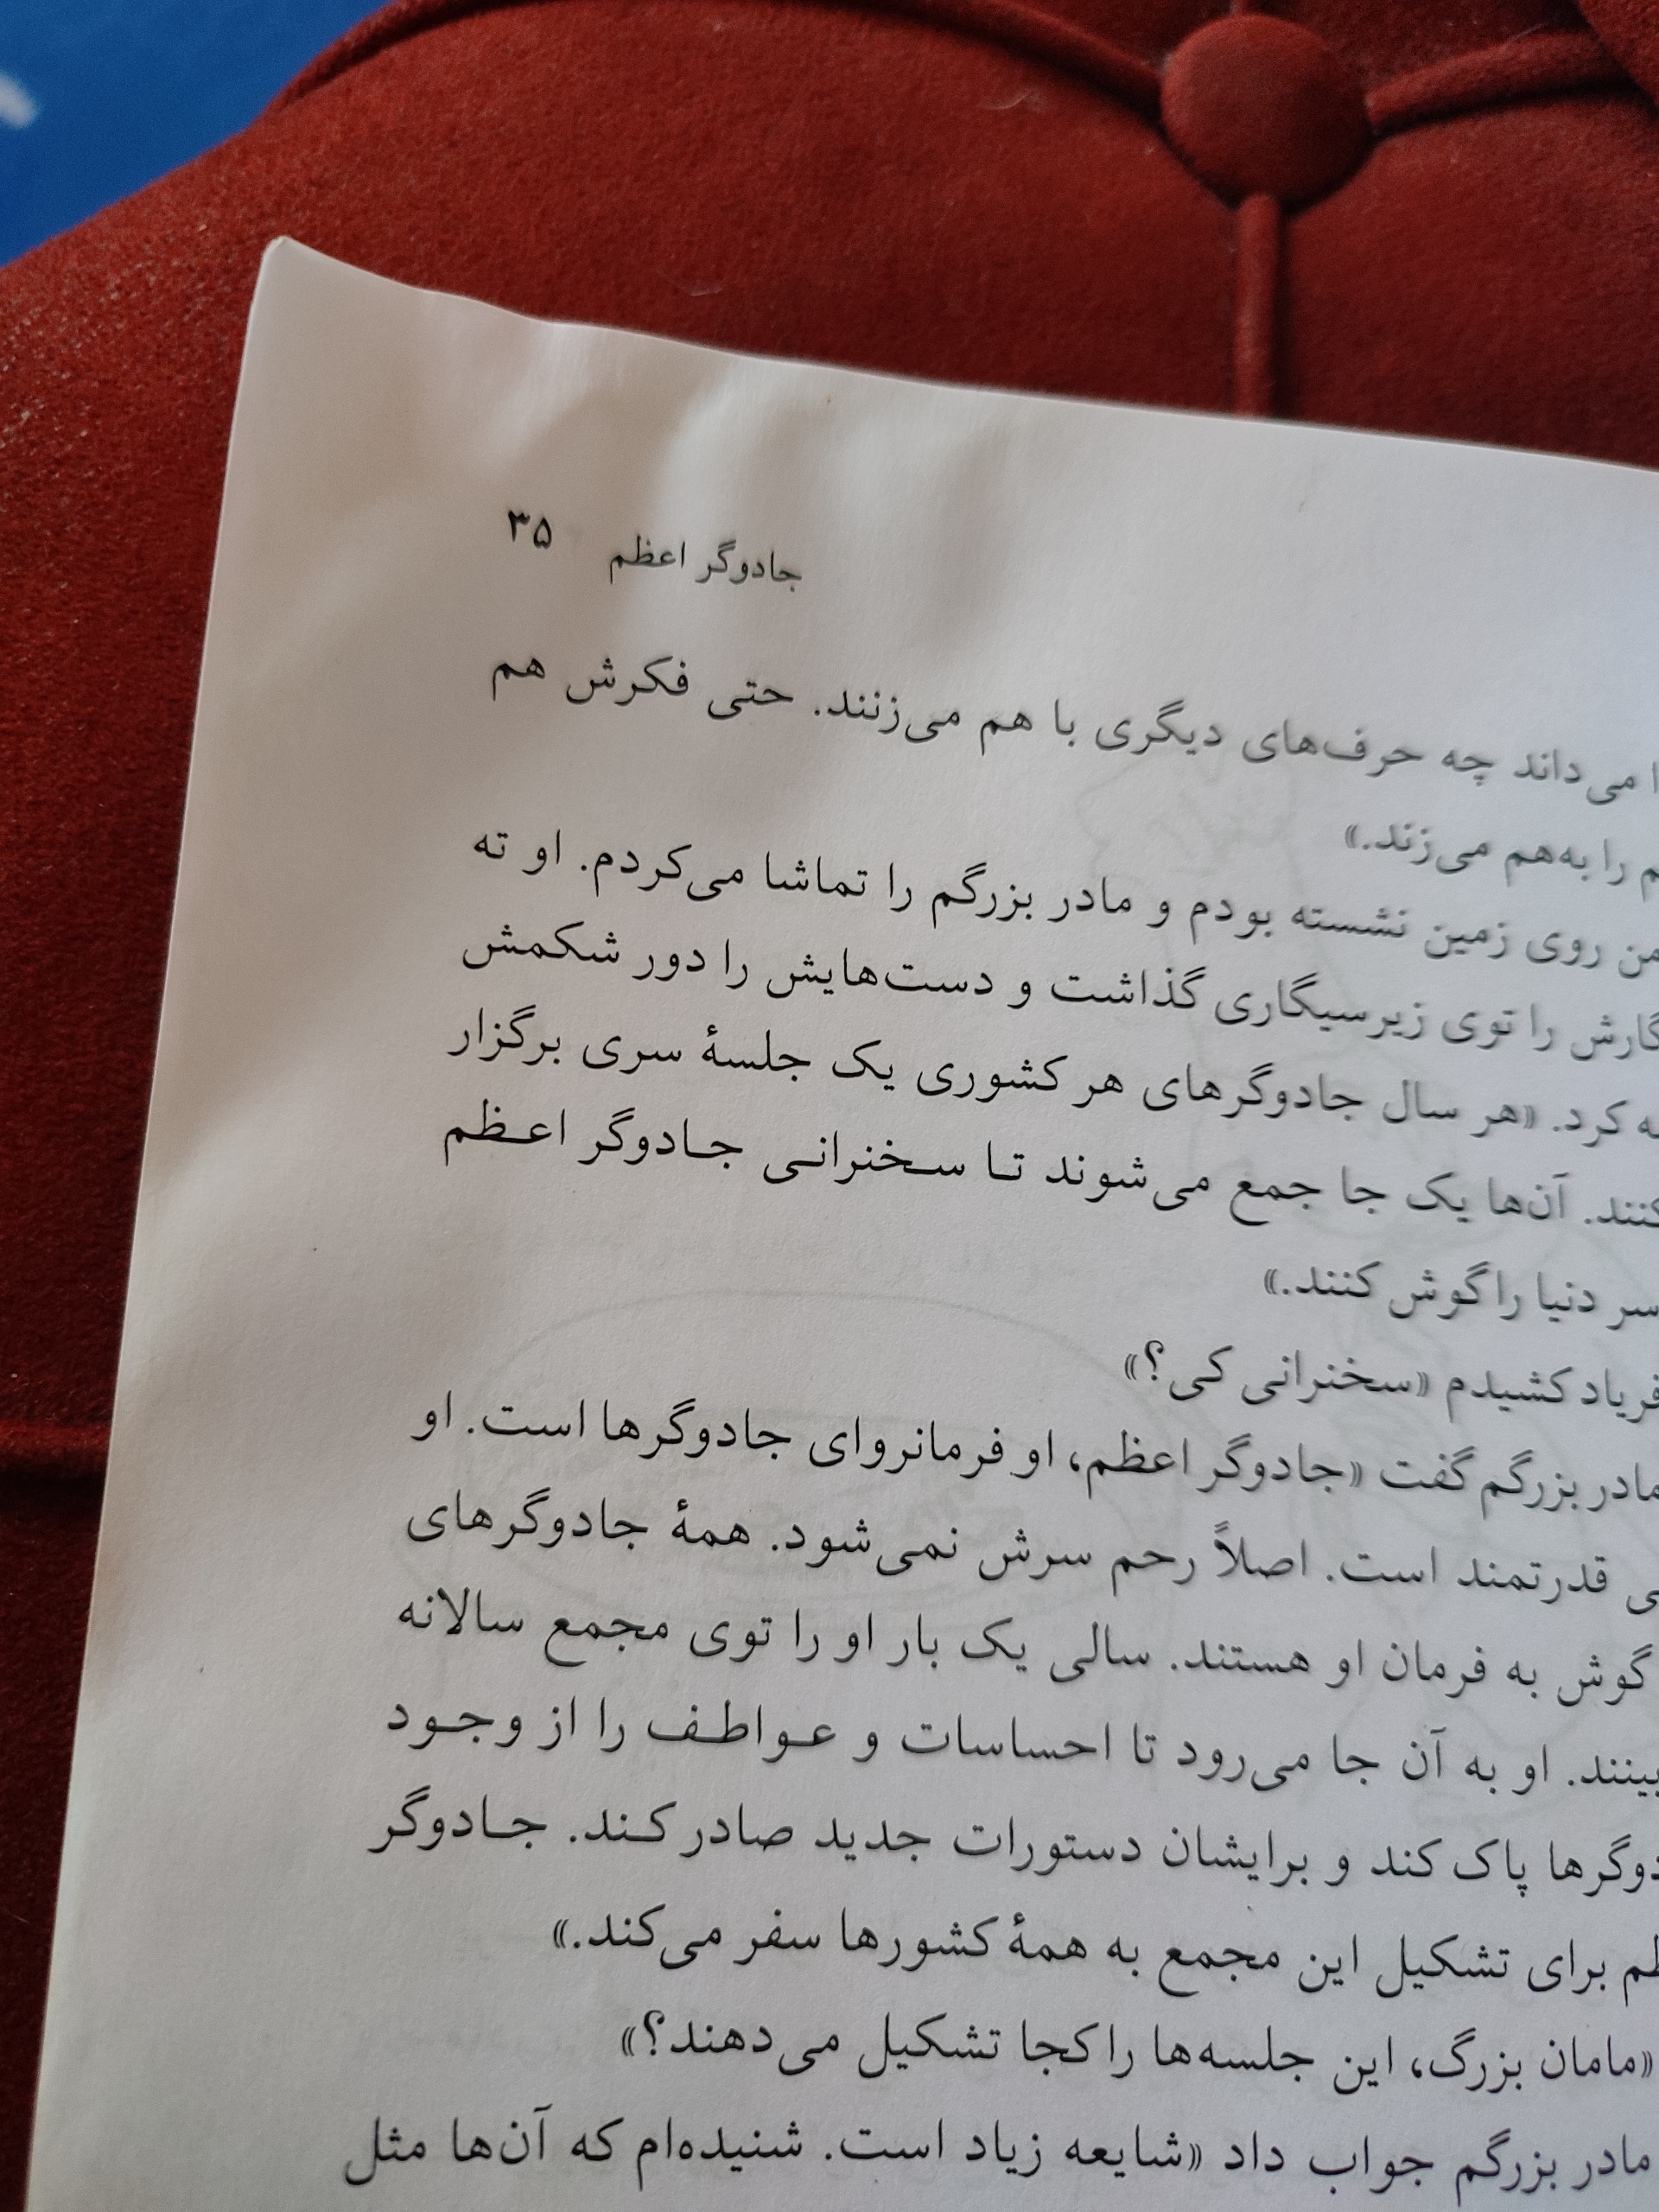 جادوگر اعظم ۳۵
می‌داند چه حرف‌های دیگری با هم می‌زنند. حتی فکرش هم
را به‌هم می‌زند.»
من روی زمین نشسته بودم و مادر بزرگم را تماشا می‌کردم. او ته
را توی زیرسیگاری گذاشت و دست‌هایش را دور شکمش
کرد. «هر سال جادوگرهای هر کشوری یک جلسهٔ سری برگزار
کنند. آن‌ها یک جا جمع می‌شوند تا سخنرانی جادوگر اعظم
سر دنیا را گوش کنند.»
فریاد کشیدم «سخنرانی کی؟»
مادر بزرگم گفت «جادوگر اعظم، او فرمانروای جادوگرها است. او
قدرتمند است. اصلاً رحم سرش نمی‌شود. همهٔ جادوگرهای
گوش به فرمان او هستند. سالی یک بار او را توی مجمع سالانه
او به آن جا می‌رود تا احساسات و عواطف را از وجود
پاک کند و برایشان دستورات جدید صادر کند. جادوگر
برای تشکیل این مجمع به همهٔ کشورها سفر می‌کند.»
«مامان بزرگ، این جلسه‌ها را کجا تشکیل می‌دهند؟»
مادر بزرگم جواب داد «شایعه زیاد است. شنیده‌ام که آن‌ها مثل